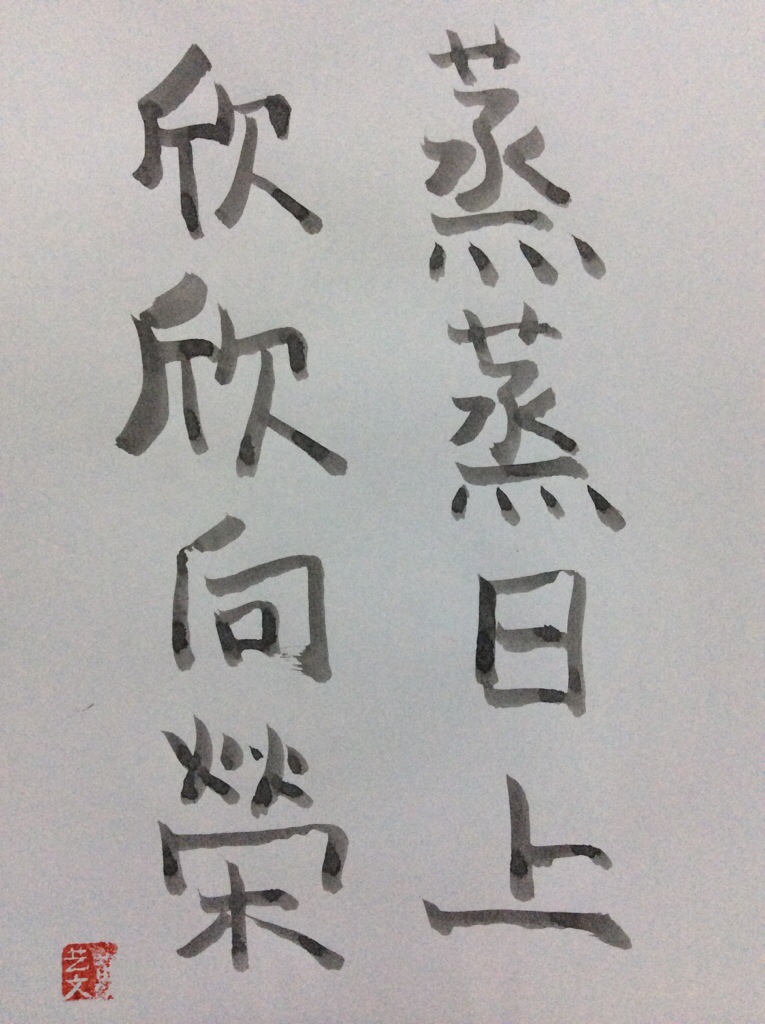 蒸蒸日上
欣欣向榮
艺文